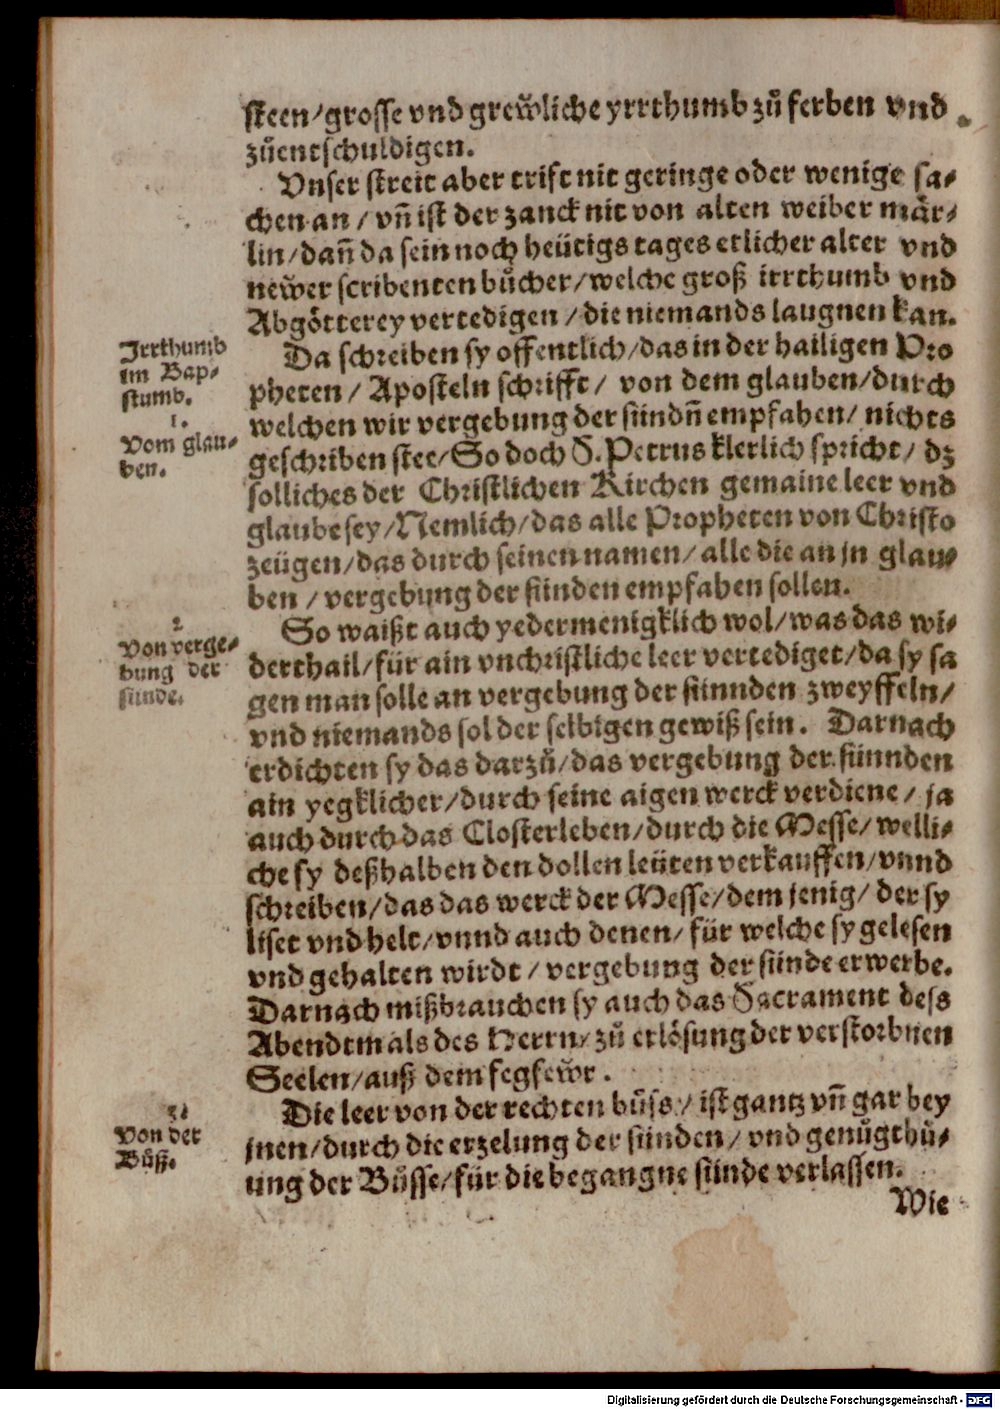 steen/grosse vnd grew̃liche yrrthumb zů ferben vnd
zůentschuldigen.
Vnser streit aber trift nit geringe oder wenige sa⸗
chen an / vñ ist der zanck nit von alten weiber mår⸗
lin/dañ da sein noch heütigs tages etlicher alter vnd
new̃er scribenten bůcher/welche groß irrthumb vnd
Abgötterey vertedigen / die niemands laugnen kan.
Irrthumb
im Bap⸗
stumb.
1.
Vom glau⸗
ben.
Da schreiben sy offentlich/das in der hailigen Pro
pheten/ Aposteln schrifft/ von dem glauben/durch
welchen wir vergebung der sündñ empfahen/ nichts
geschriben stee/So doch S. Petrus klerlich spricht/ dz
solliches der Christlichen Kirchen gemaine leer vnd
glaube sey/Nemlich/das alle Propheten von Christo
zeügen/das durch seinen namen/ alle die an jn glau⸗
ben / vergebung der sünden empfahen sollen.
2
Von verge⸗
bung der
sünde.
So waißt auch yedermenigklich wol/was das wi⸗
derthail/für ain vnchristliche leer vertediget/da sy sa
gen man solle an vergebung der sünnden zweyffeln/
vnd niemands sol der selbigen gewiß sein. Darnach
erdichten sy das darzů/das vergebung der sünnden
ain yegklicher/durch seine aigen werck verdiene/ ja
auch durch das Closterleben/durch die Messe/welli⸗
che sy deßhalben den dollen leüten verkauffen/vnnd
schreiben/das das werck der Messe/dem jenig/ der sy
liset vnd helt/vnnd auch denen/ für welche sy gelesen
vnd gehalten wirdt / vergebung der sünde erwerbe.
Darnach mißbrauchen sy auch das Sacrament dess
Abendtmals des Herrn/ zů erlösung der verstorbnen
Seelen/auß dem fegfew̃r.
3.
Von der
Bůß.
Die leer von der rechten bůss/ ist gantz vñ gar bey
jnen/durch die erzelung der sünden/ vnd genůgthů⸗
ung der Bůsse/für die begangne sünde verlassen.
Wie
Digitalisierung gefördert durch die Deutsche Forschungsgemeinschaft - DFG